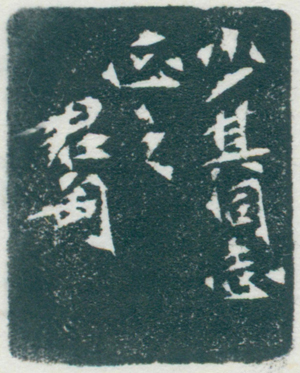 少其同志
正之
君匋